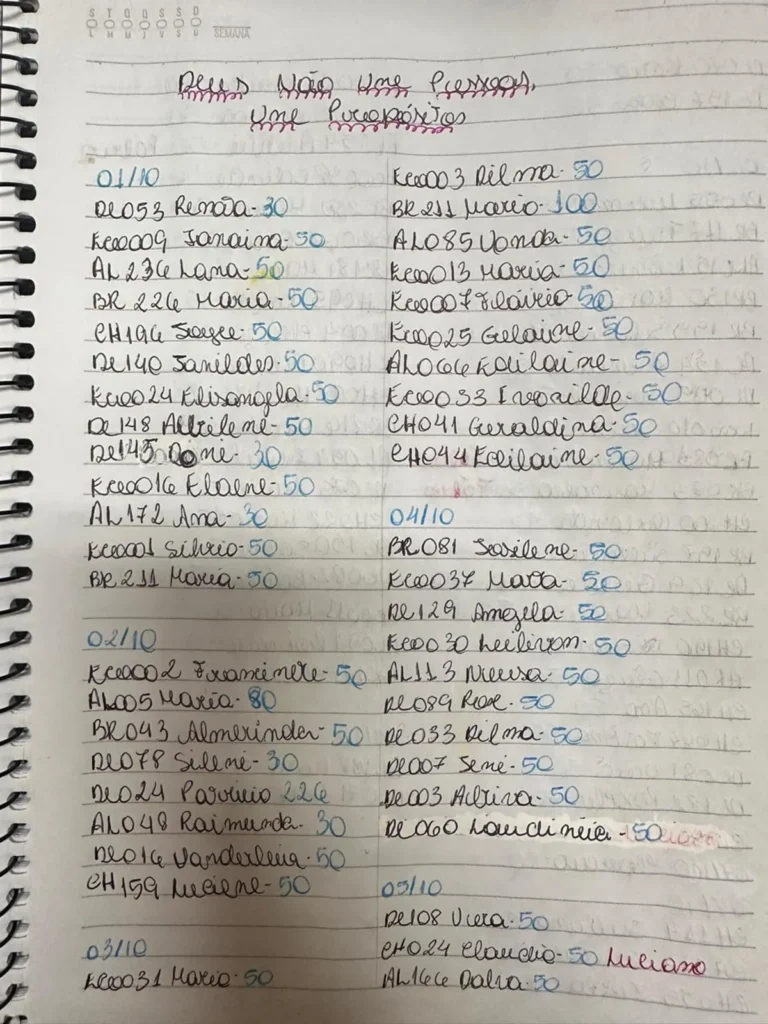 S T Q Q S S D
SEMANA
Deus Não Une Pessoas,
Une Propósitos
01/10
DE053 Renata-30
Eco009 Janaina-50
AL236 Lana-50
BR226 Maria-50
CH196 Joyce-50
DE140 Janildes-50
Eco024 Elisangela-50
DE148 Altilene-50
DE145 Done-30
Eco016 Elaene-50
AL172 Ana-30
Eco001 Silvio-50
BR211 Maria-50
02/10
Eco002 Francinete-50
AL005 Maria-80
BR043 Almerinda-50
DE078 Silene-30
DE024 Patricio 226
AL048 Raimunda-30
DE016 Vanderleia-50
CH159 Luciene-50
03/10
Eco031 Maria-50
Eco003 Dilma-50
BR211 Mario-100
AL085 Vanda-50
Eco013 Maria-50
Eco007 Flávio-50
Eco025 Gelaine-50
AL066 Edilaine-50
Eco033 Ivonilde-50
CH041 Geraldina-50
CH044 Edilaine-50
04/10
BR081 Josilene-50
Eco037 Marta-50
DE129 Angela-50
Eco030 Leilivan-50
AL113 Nleusa-50
DE089 Rose-50
DE033 Dilma-50
DE007 Sene-50
DE003 Altiva-50
DE060 Laudineia-50
05/10
DE108 Vera-50
CH024 Claudio-50 Luciano
AL166 Dalva-50